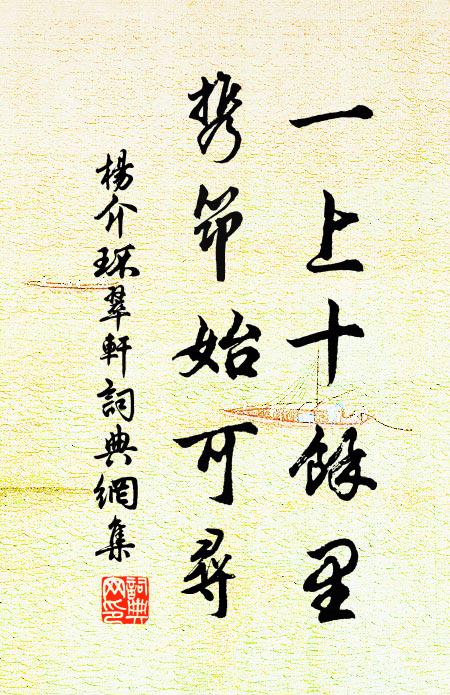 一上十餘里
携筇始可尋
楊介環翠軒詞典網集
詞典網印